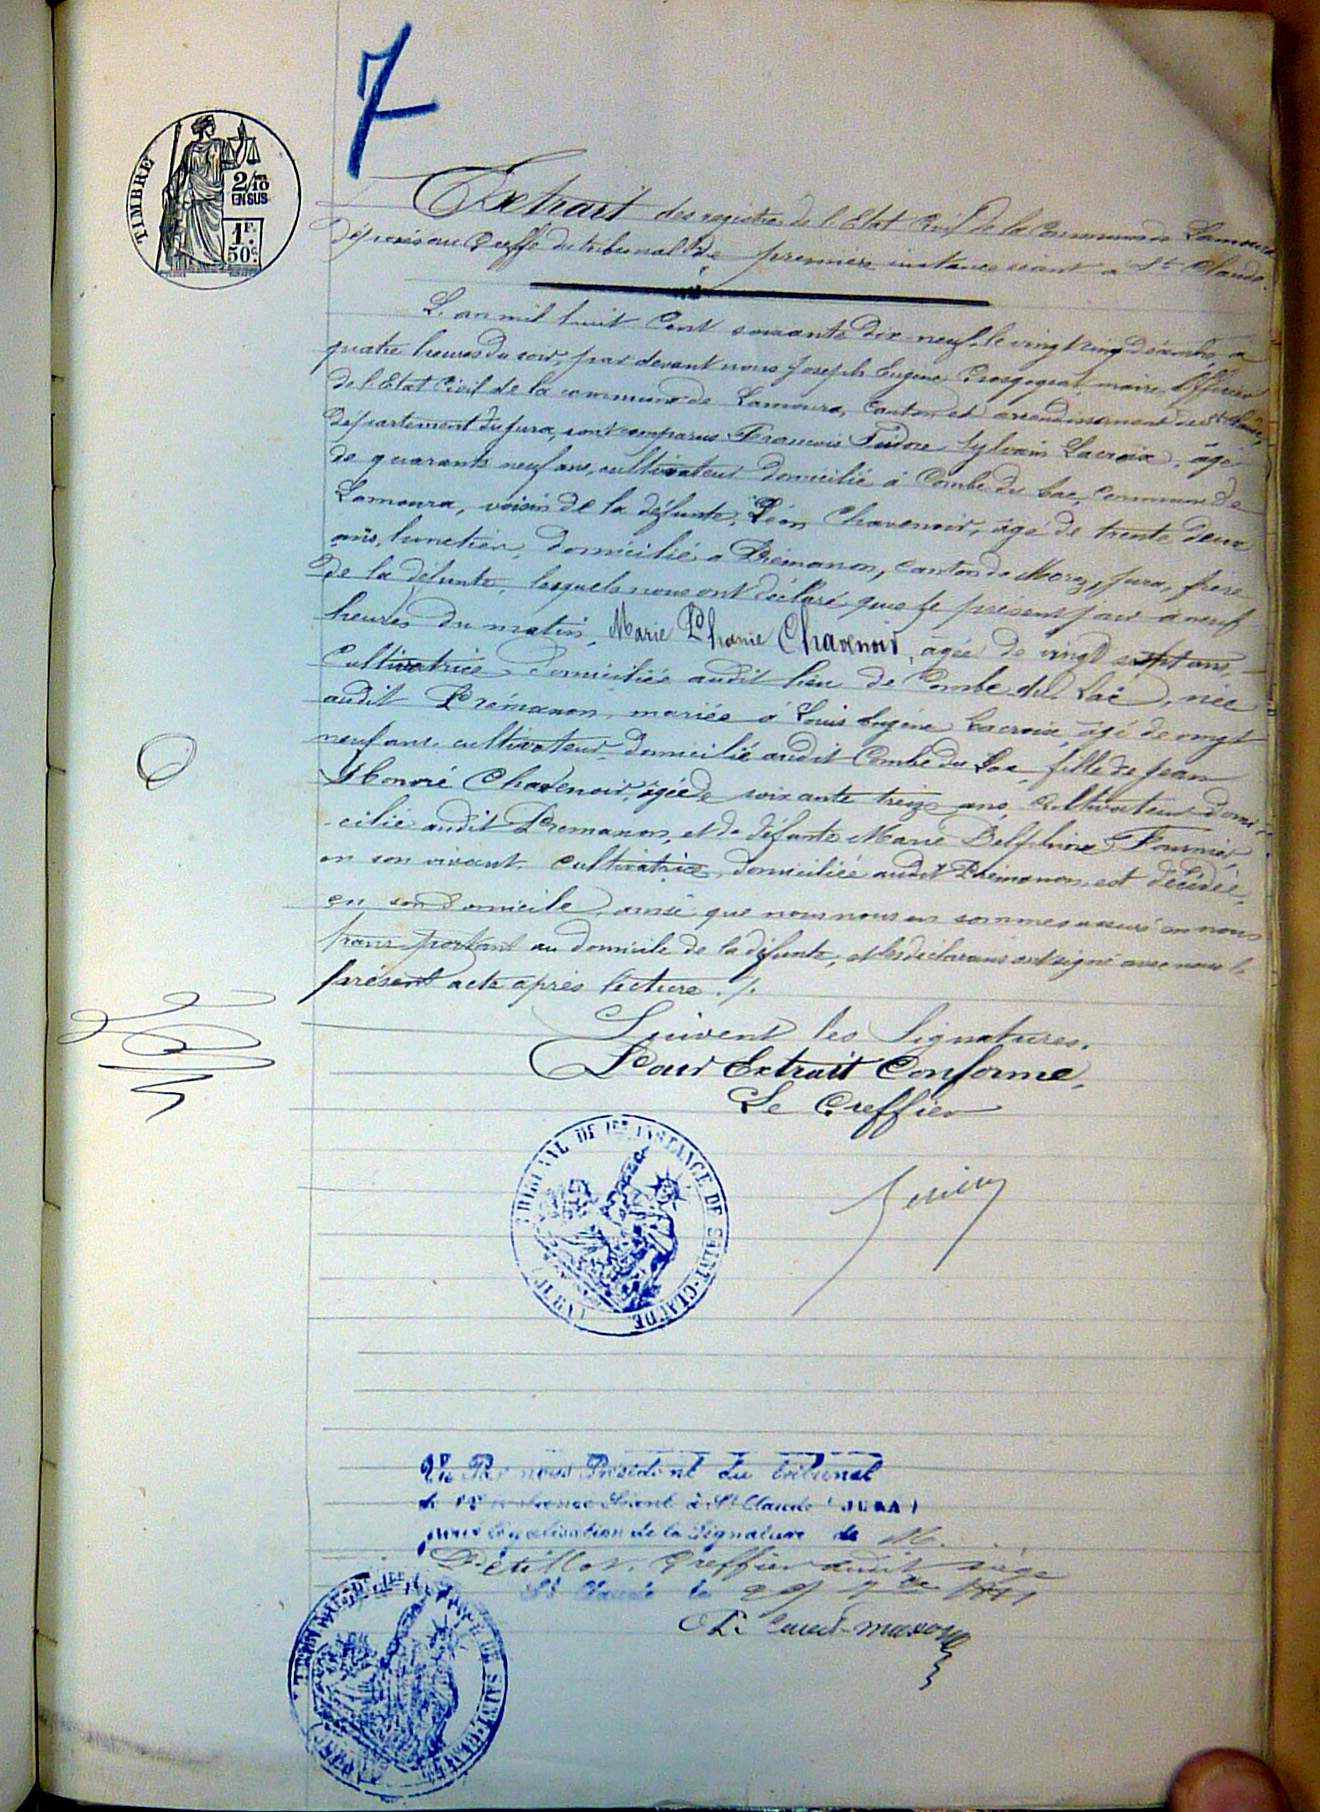 7
TIMBRE
2/10
EN SUS
1F.
50c.
Extrait des registres de l'Etat Civil de la Commune de Lamoura
déposés au Greffe du tribunal de première instance séant à St Claude.
L'an mil huit Cent soixante dix-neuf le vingt cinq décembre, à
quatre heures du soir, par devant nous Joseph Eugène maire, Officier
de l'Etat Civil de la commune de Lamoura, Canton et arrondissement de St Claude,
département du Jura, sont comparus François Isidore Sylvain Lacroix, âgé
de quarante neuf ans, cultivateur domicilié à Combe du Lac, Commune de
Lamoura, voisin de la défunte, Léon Chavenoir, âgé de trente deux
ans, lunetier, domicilié à Prémanon, canton de Morez, Jura, frère
de la défunte, lesquels nous ont déclaré que le présent jour à neuf
heures du matin, Marie Phanie Chavenoir, agée de vingt sept ans,
Cultivatrice domiciliée audit lieu de Combe du Lac, née
audit Prémanon, mariée à Louis Eugène Lacroix, âgé de vingt
neuf ans, cultivateur, domicilié audit Combe du Lac, fille de Jean
Honoré Chavenoir, âgé de soixante treize ans, Cultivateur domi-
cilié audit Prémanon, et de défunte Marie Delphine Fournier,
en son vivant, Cultivatrice, domiciliée audit Prémanon, est décédée,
en son domicile, ainsi que nous nous en sommes assuré en nous
transportant au domicile de la défunte, et les déclarans ont signé avec nous le
présent acte après lecture ./.
Suivent les Signatures.
Pour Extrait Conforme,
Le Greffier
TRIBUNAL DE 1ERE INSTANCE DE SAINT-CLAUDE (JURA)
Vu Par nous Président du tribunal
de 1re instance Séant à St Claude (JURA)
pour légalisation de la Signature de M.
Petillot, Greffier audit siège
St Claude le 29
TRIBUNAL DE 1ERE INSTANCE DE SAINT-CLAUDE (JURA)